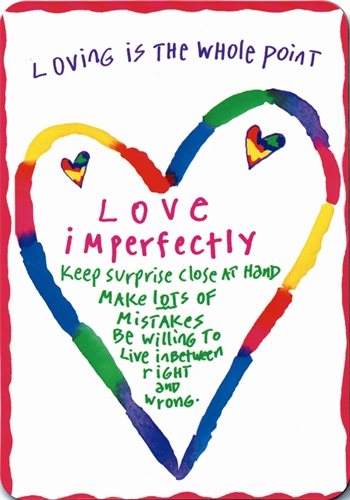 Loving is the whole point
Love
imperfectly
Keep surprise close at hand
Make lots of
mistakes
Be willing to
live inbetween
right
and
wrong.